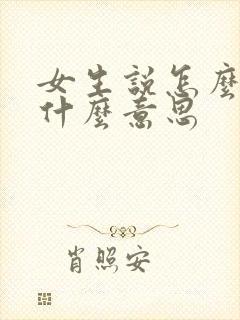 女生説怎麼
什麼意思
肖照安